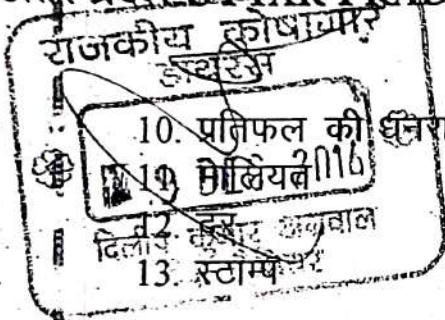 राजकीय कोषागार
हाथरस
10. प्रतिफल की धनरा
11. मालियत 2016
12. दर
दिलीप कुमार अग्रवाल
13. स्टाम्प